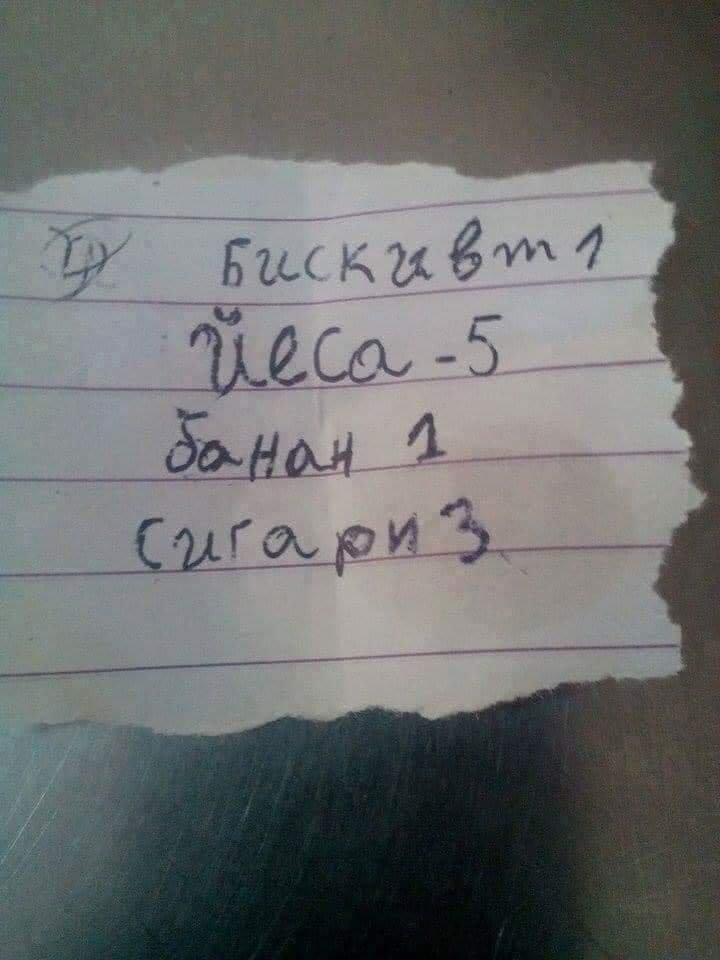 Бискивт 1
Йеса - 5
банан 1
сигари 3